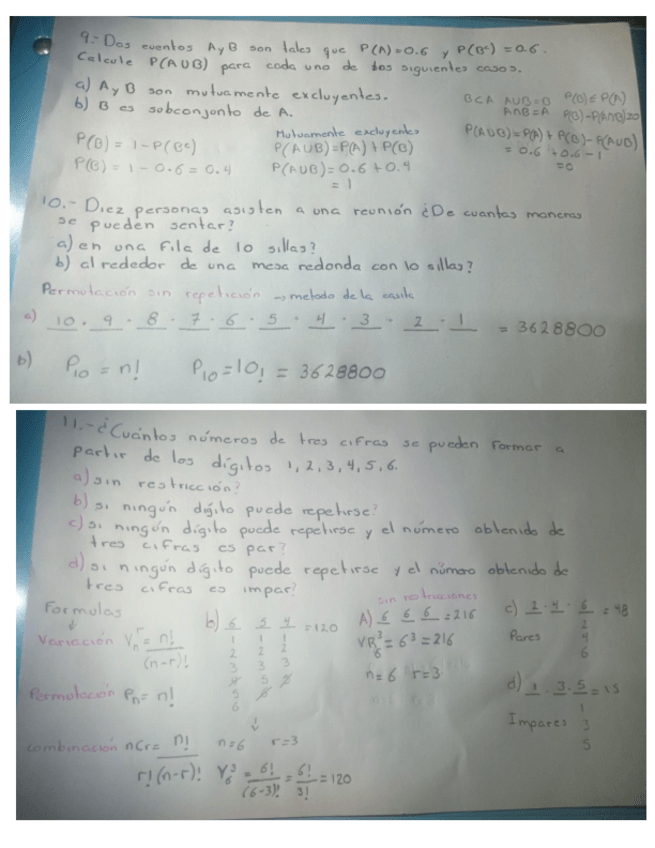 9.- Dos eventos A y B son tales que P(A)=0.6 y P(Bᶜ)=0.6.
Calcule P(A∪B) para cada uno de los siguientes casos.
a) A y B son mutuamente excluyentes.
b) B es subconjunto de A.
P(B) = 1-P(Bᶜ)
P(B) = 1-0.6 = 0.4
Mutuamente excluyentes
P(A∪B)=P(A)+P(B)
P(A∪B)=0.6+0.4
= 1
B⊂A A∪B=B P(B)≤P(A)
A∩B=A P(B)-P(A∩B)=0
P(A∪B)=P(A)+P(B)-P(A∪B)
= 0.6+0.6-1
=0
10.- Diez personas asisten a una reunión ¿De cuantas maneras
se pueden sentar?
a) en una fila de 10 sillas?
b) al rededor de una mesa redonda con 10 sillas?
Permutación sin repetición → metodo de la casita
a) 10 · 9 · 8 · 7 · 6 · 5 · 4 · 3 · 2 · 1 = 3628800
b) P₁₀ = n! P₁₀=10! = 3628800
11.- ¿Cuántos números de tres cifras se pueden formar a
partir de los dígitos 1,2,3,4,5,6.
a) sin restricción?
b) si ningún dígito puede repetirse?
c) si ningún dígito puede repetirse y el número obtenido de
tres cifras es par?
d) si ningún dígito puede repetirse y el número obtenido de
tres cifras es impar?
Formulas
↓
Variación Vₙʳ = n!
(n-r)!
Permutación Pₙ= n!
combinación nCr= n!
r!(n-r)!
b) 6 5 4 =120
1 1 1
2 2 2
3 3 3
4 5 2
5 6
6
↓
n=6 r=3
V₆³ = 6! = 6! = 120
(6-3)! 3!
sin restricciones
A) 6 6 6 =216
VR₆³ = 6³ = 216
n=6 r=3
c) 2 · 4 · 6 = 48
2
Pares 4
6
d) 1 · 3 · 5 = 15
1
Impares 3
5